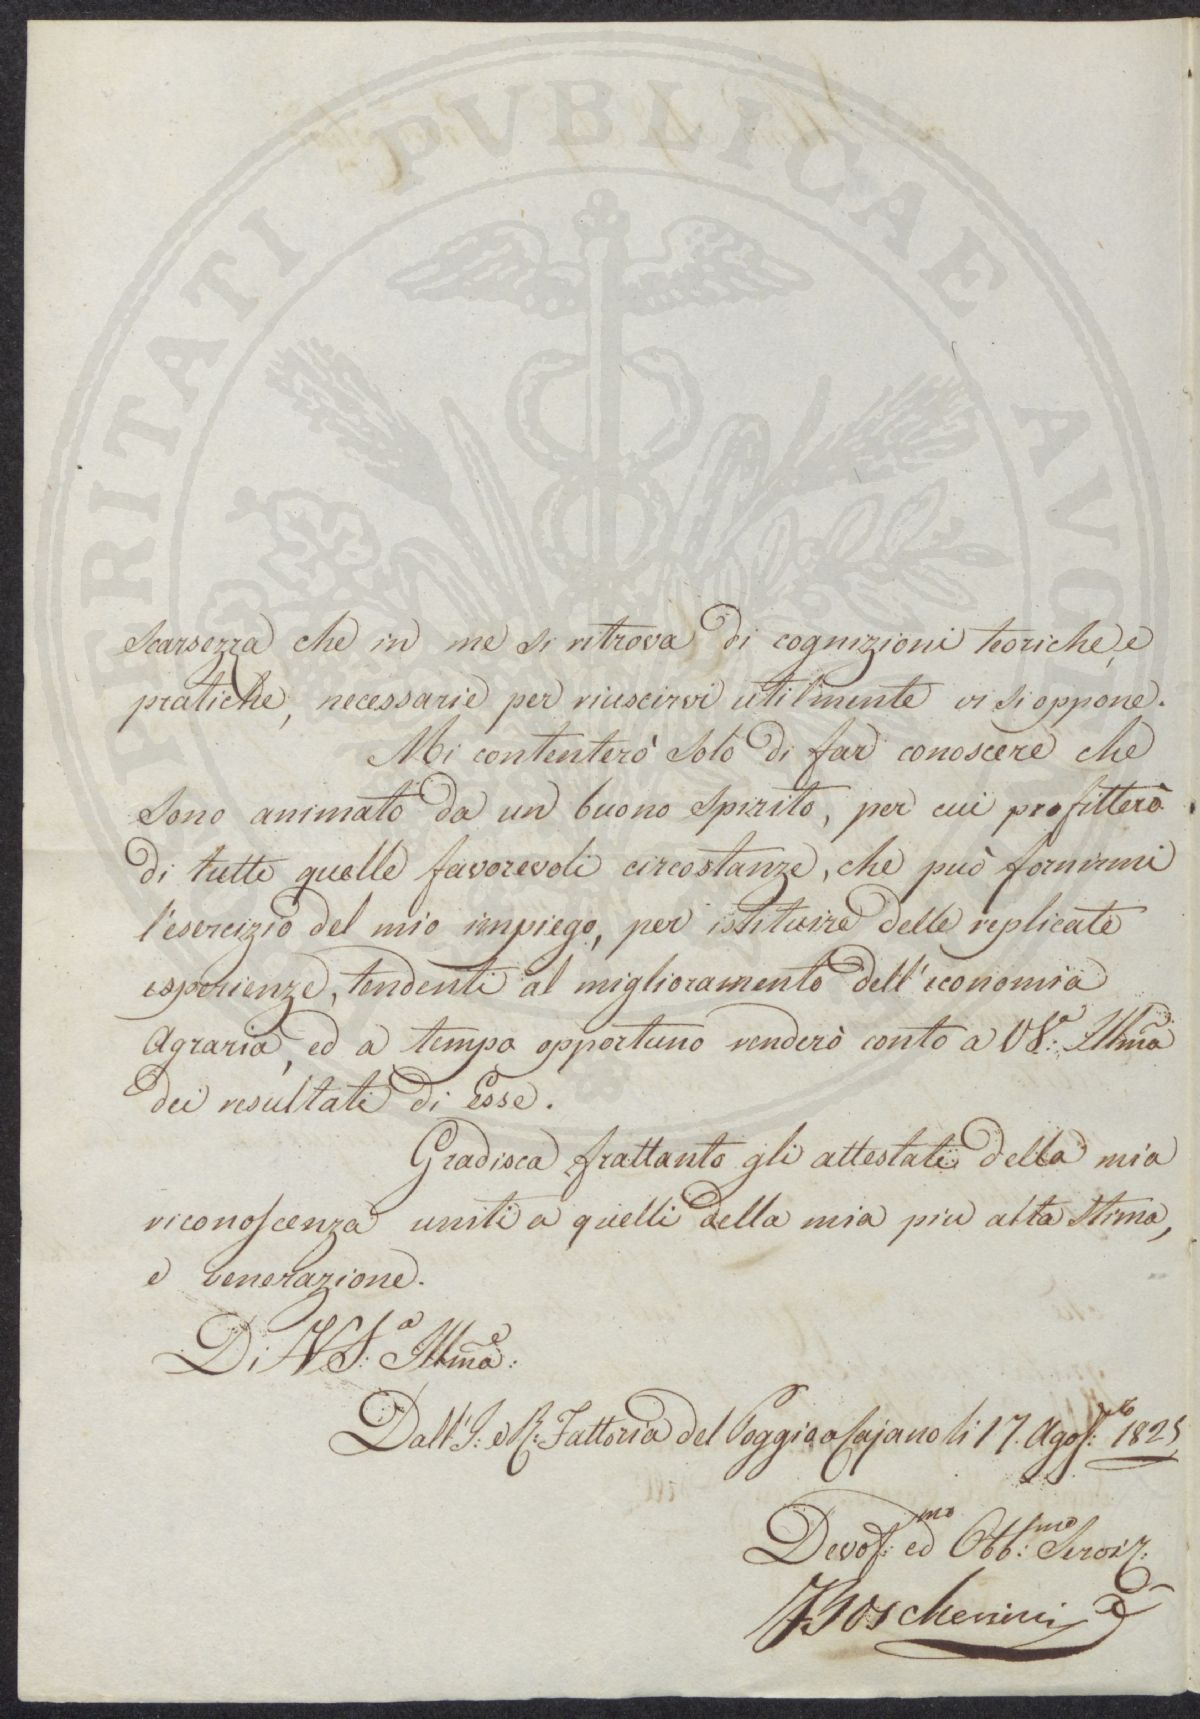 PROSPERITATI PVBLICAE AVG
scarsezza che in me si ritrova di cognizioni teoriche, e
pratiche, necessarie per riuscirvi utilmente vi si oppone.
Mi contenterò solo di far conoscere che
sono animato da un buono spirito, per cui profitterò
di tutte quelle favorevoli circostanze, che può fornirmi
l'esercizio del mio impiego, per istituire delle replicate
esperienze, tendenti al miglioramento dell'economia
Agraria, ed a tempo opportuno renderò conto a VS.ª Illma
dei resultati di Esse.
Gradisca frattanto gli attestati della mia
riconoscenza uniti a quelli della mia più alta stima,
e venerazione.
Di VS.ª Illma:
Dall'I: e R: Fattoria del Poggio a Cajano li 17. Agosto 1825
Devos:mo ed Obb:mo Servit:e
Boscherini